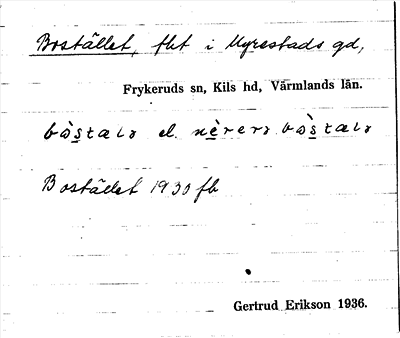 Bostället, fht i Myrestads gd,
Frykeruds sn, Kils hd, Värmlands län.
el.
Bostället 1930 fb
Gertrud Erikson 1936.